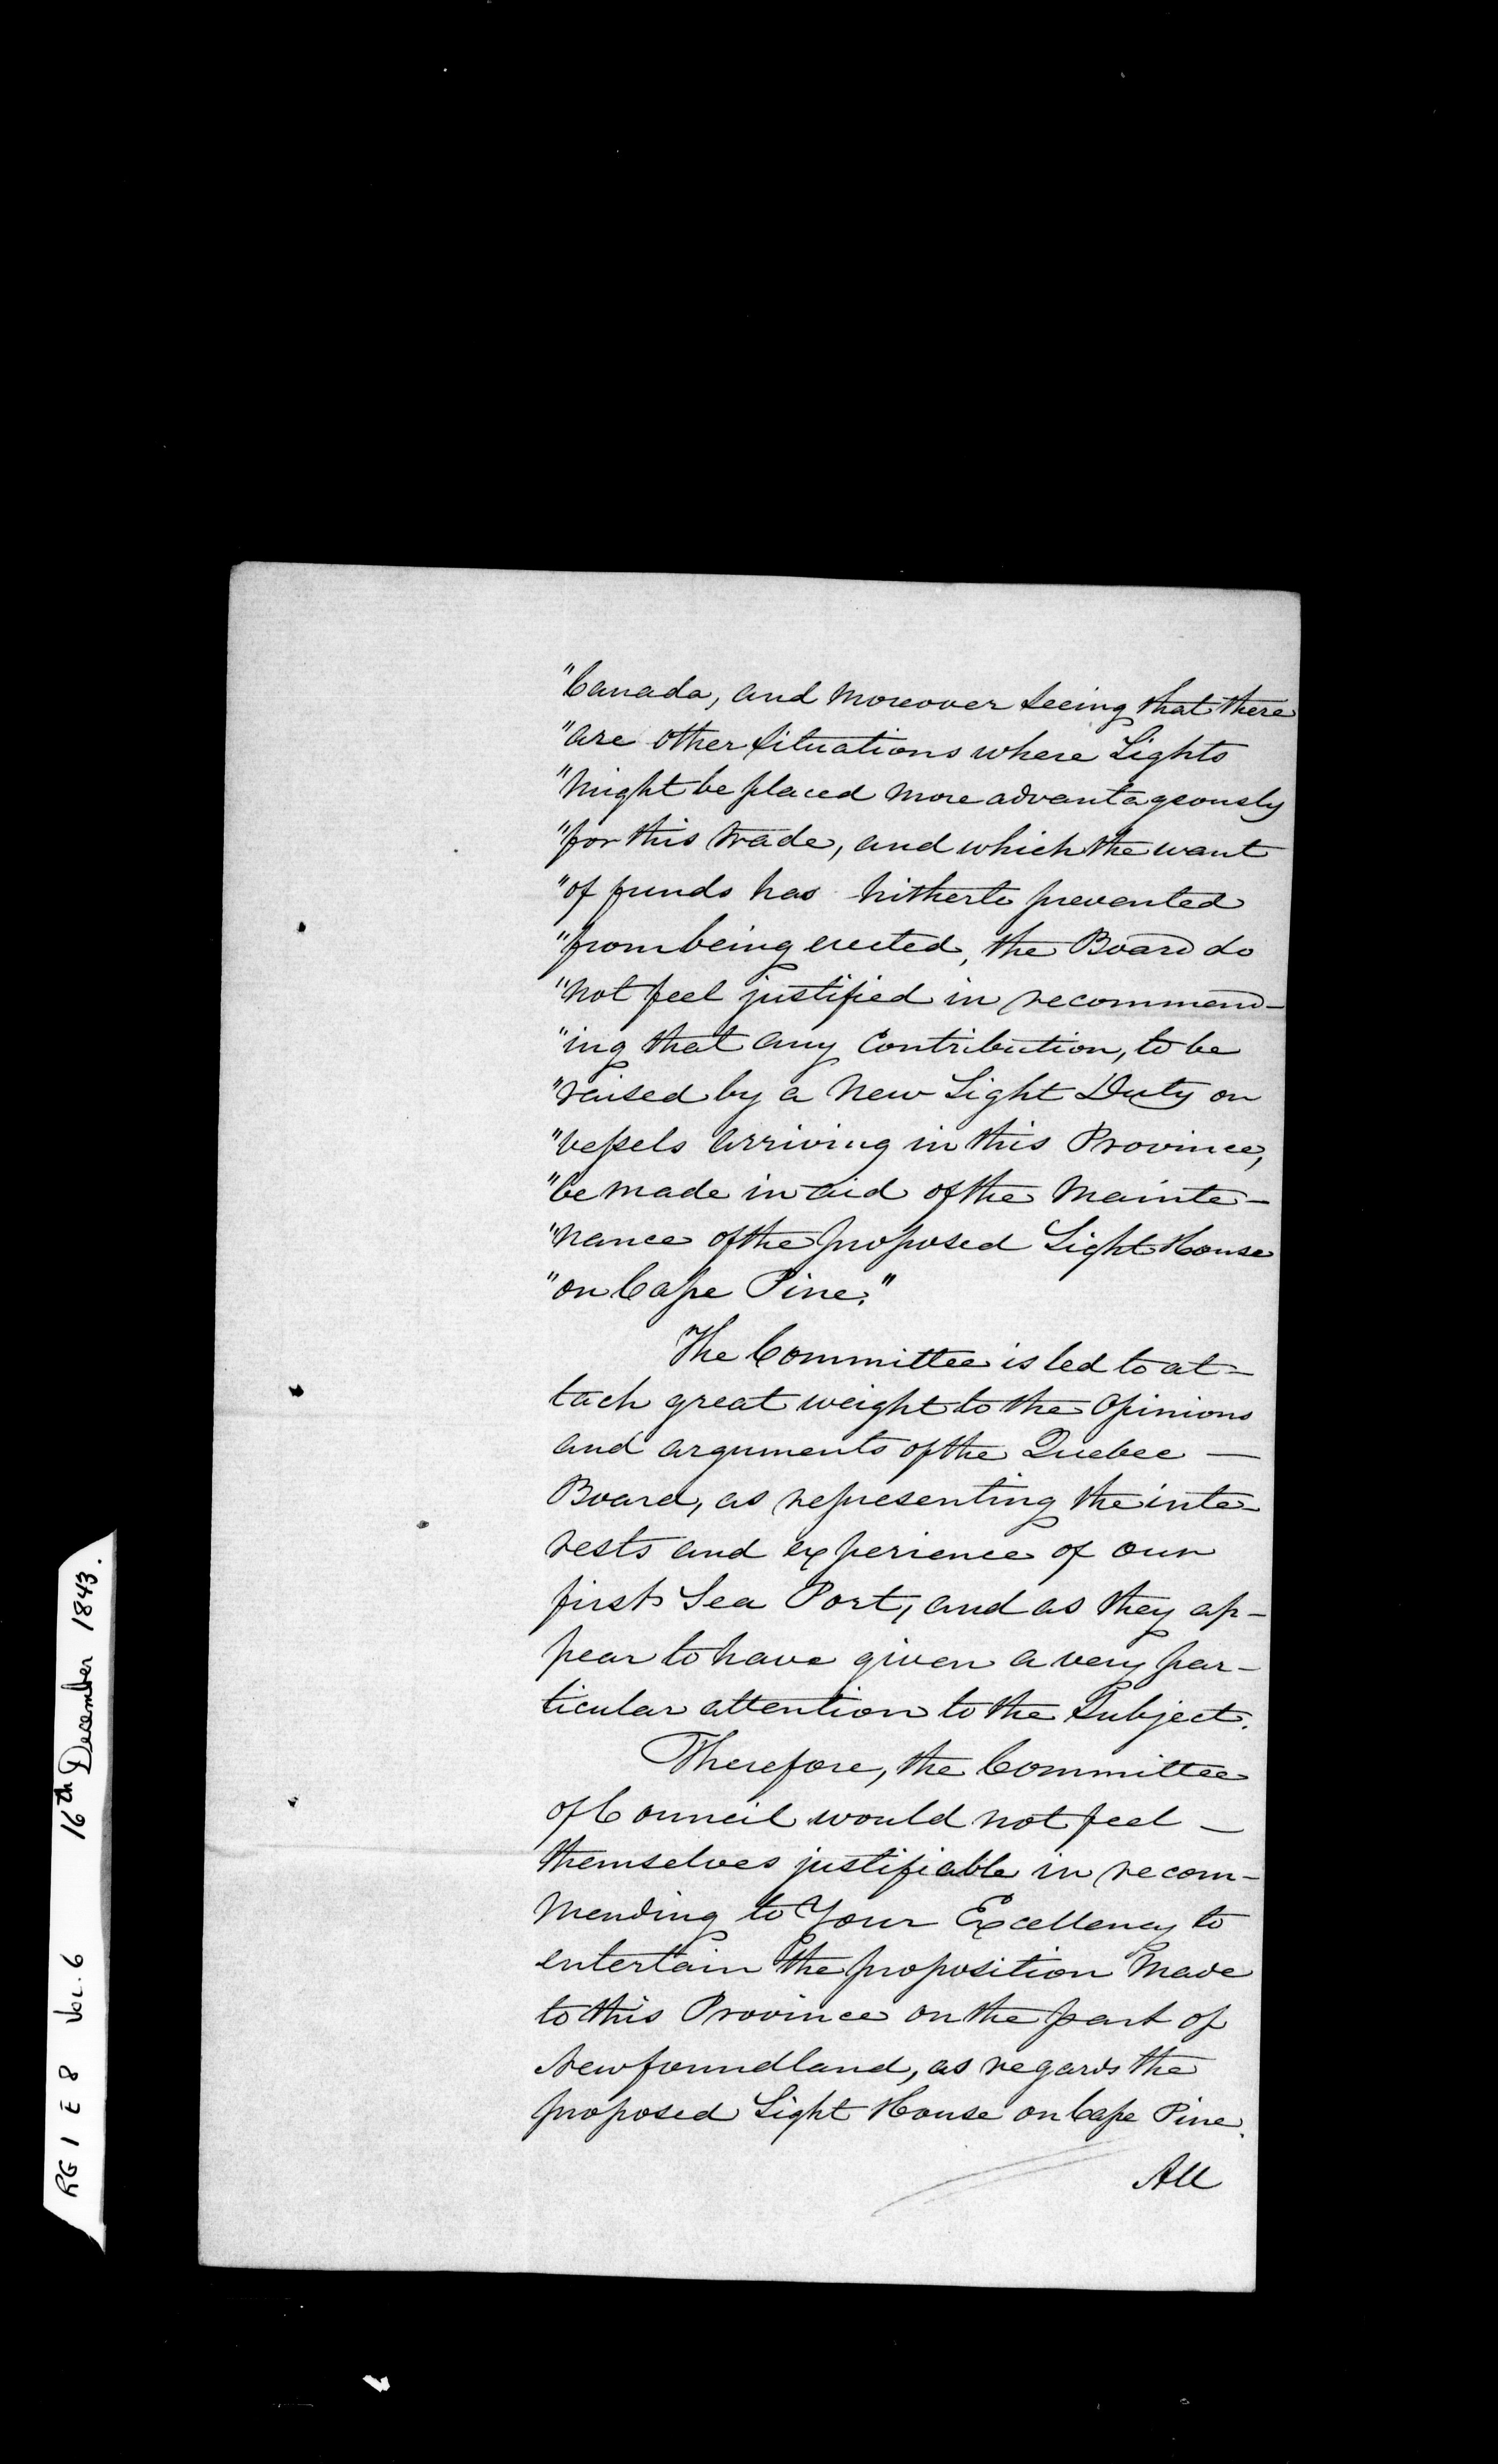 "Canada, and moreover seeing that there
"are other situations where Lights
"might be placed more advantageously
"for this trade, and which the want
"of funds has hitherto prevented
"from being erected, the Board do
"not feel justified in recommend-
"ing that any Contribution, to be
"raised by a New Light Duty on
"vessels arriving in this Province,
"be made in aid of the Mainte-
"nance of the proposed Light House
"on Cape Pine."
The Committee is led to at-
tach great weight to the Opinions
and arguments of the Quebec —
Board, as representing the inte-
rests and experience of our
first Sea Port, and as they ap-
pear to have given a very par-
ticular attention to the Subject.
Therefore, the Committee
of Council would not feel —
themselves justifiable in recom-
mending to Your Excellency to
entertain the proposition made
to this Province on the part of
Newfoundland, as regards the
proposed Light House on Cape Pine.
All
RG 1 E 8 Vol. 6 16th December 1843.